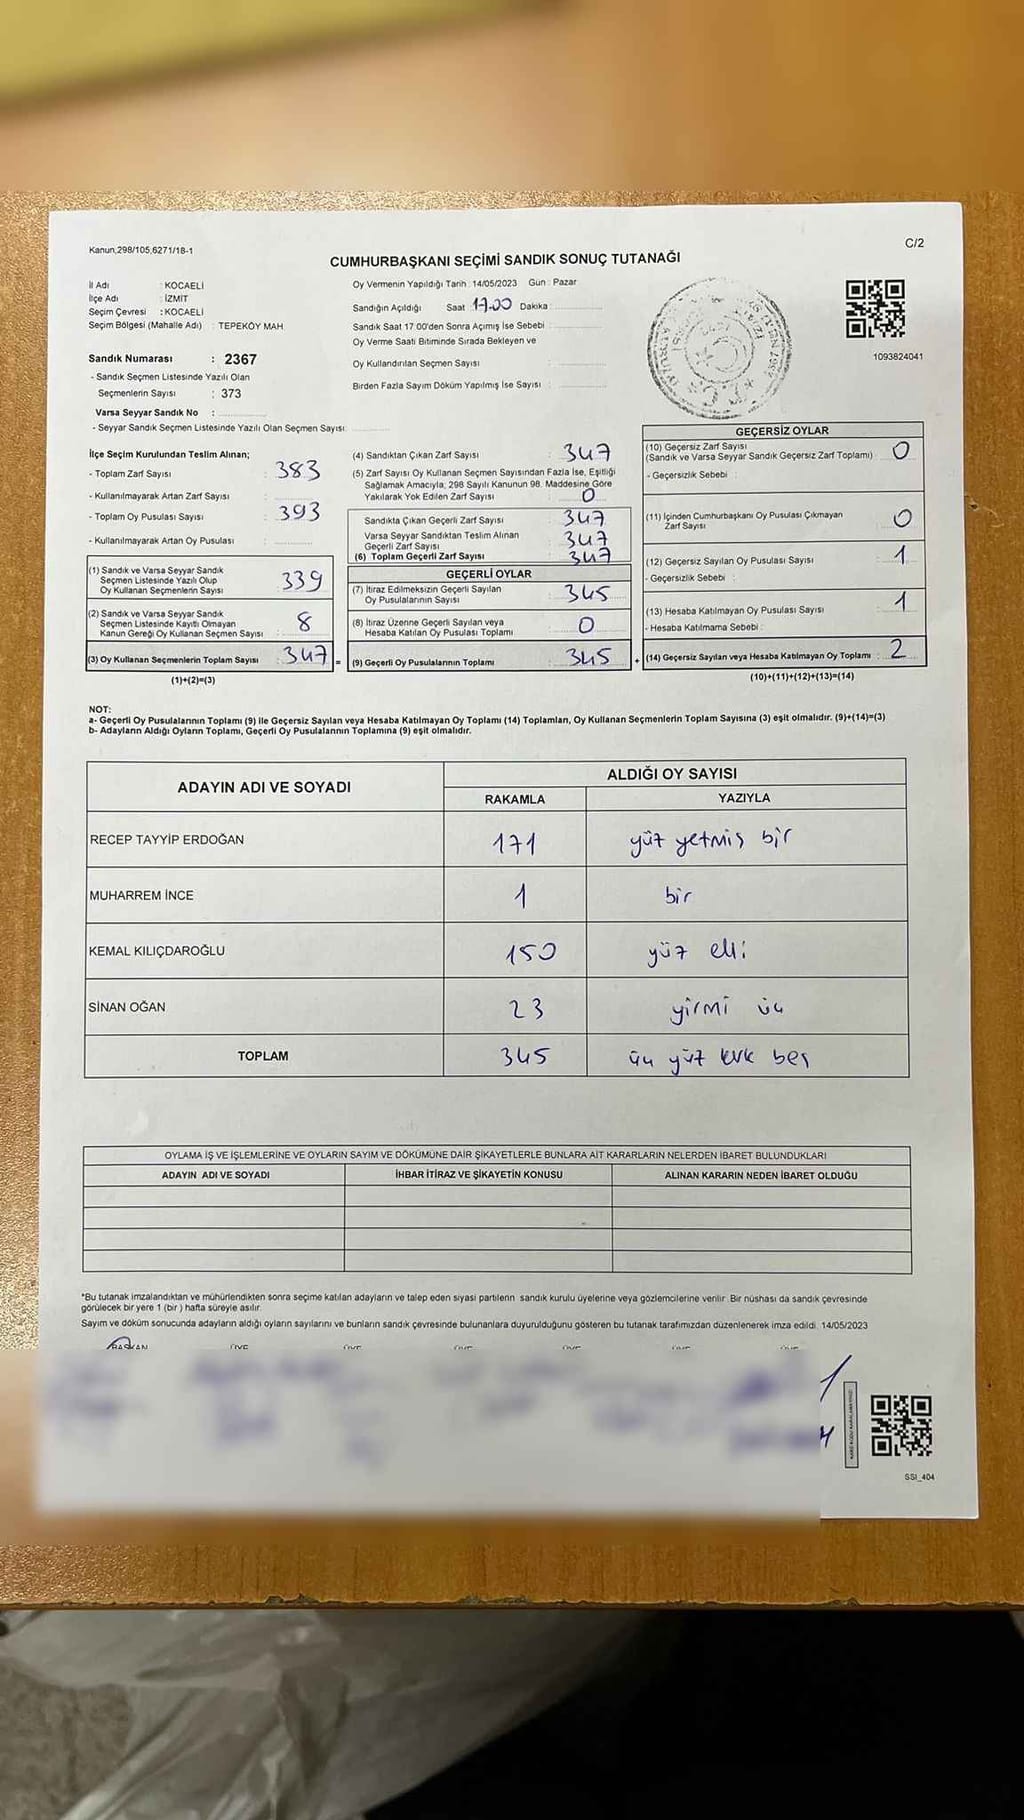 Kanun,298/105,6271/18-1
C/2
CUMHURBAŞKANI SEÇİMİ SANDIK SONUÇ TUTANAĞI
İl Adı : KOCAELİ
İlçe Adı : İZMİT
Seçim Çevresi : KOCAELİ
Seçim Bölgesi (Mahalle Adı) : TEPEKÖY MAH
Sandık Numarası : 2367
- Sandık Seçmen Listesinde Yazılı Olan
Seçmenlerin Sayısı : 373
Varsa Seyyar Sandık No :
- Seyyar Sandık Seçmen Listesinde Yazılı Olan Seçmen Sayısı:
Oy Vermenin Yapıldığı Tarih : 14/05/2023 Gün : Pazar
Sandığın Açıldığı Saat 17.00 Dakika :
Sandık Saat 17 00'den Sonra Açımış İse Sebebi :
Oy Verme Saati Bitiminde Sırada Bekleyen ve
Oy Kullandırılan Seçmen Sayısı :
Birden Fazla Sayım Döküm Yapılmış İse Sayısı :
1093824041
İlçe Seçim Kurulundan Teslim Alınan;
- Toplam Zarf Sayısı : 383
- Kullanılmayarak Artan Zarf Sayısı :
- Toplam Oy Pusulası Sayısı : 393
- Kullanılmayarak Artan Oy Pusulası :
(1) Sandık ve Varsa Seyyar Sandık
Seçmen Listesinde Yazılı Olup
Oy Kullanan Seçmenlerin Sayısı : 339
(2) Sandık ve Varsa Seyyar Sandık
Seçmen Listesinde Kayıtlı Olmayan
Kanun Gereği Oy Kullanan Seçmen Sayısı : 8
(3) Oy Kullanan Seçmenlerin Toplam Sayısı : 347
(1)+(2)=(3)
(4) Sandıktan Çıkan Zarf Sayısı : 347
(5) Zarf Sayısı Oy Kullanan Seçmen Sayısından Fazla İse, Eşitliği
Sağlamak Amacıyla; 298 Sayılı Kanunun 98. Maddesine Göre
Yakılarak Yok Edilen Zarf Sayısı : 0
Sandıkta Çıkan Geçerli Zarf Sayısı : 347
Varsa Seyyar Sandıktan Teslim Alınan
Geçerli Zarf Sayısı : 347
(6) Toplam Geçerli Zarf Sayısı : 347
GEÇERLİ OYLAR
(7) İtiraz Edilmeksizin Geçerli Sayılan
Oy Pusulalarının Sayısı : 345
(8) İtiraz Üzerine Geçerli Sayılan veya
Hesaba Katılan Oy Pusulası Toplamı : 0
= (9) Geçerli Oy Pusulalarının Toplamı : 345
GEÇERSİZ OYLAR
(10) Geçersiz Zarf Sayısı
(Sandık ve Varsa Seyyar Sandık Geçersiz Zarf Toplamı) : 0
- Geçersizlik Sebebi :
(11) İçinden Cumhurbaşkanı Oy Pusulası Çıkmayan
Zarf Sayısı : 0
(12) Geçersiz Sayılan Oy Pusulası Sayısı : 1
- Geçersizlik Sebebi :
(13) Hesaba Katılmayan Oy Pusulası Sayısı : 1
- Hesaba Katılmama Sebebi :
+ (14) Geçersiz Sayılan veya Hesaba Katılmayan Oy Toplamı : 2
(10)+(11)+(12)+(13)=(14)
NOT:
a- Geçerli Oy Pusulalarının Toplamı (9) ile Geçersiz Sayılan veya Hesaba Katılmayan Oy Toplamı (14) Toplamları, Oy Kullanan Seçmenlerin Toplam Sayısına (3) eşit olmalıdır. (9)+(14)=(3)
b- Adayların Aldığı Oyların Toplamı, Geçerli Oy Pusulalarının Toplamına (9) eşit olmalıdır.
ADAYIN ADI VE SOYADI ALDIĞI OY SAYISI
RAKAMLA YAZIYLA
RECEP TAYYİP ERDOĞAN 171 yüz yetmiş bir
MUHARREM İNCE 1 bir
KEMAL KILIÇDAROĞLU 150 yüz elli
SİNAN OĞAN 23 yirmi üç
TOPLAM 345 üç yüz kırk beş
OYLAMA İŞ VE İŞLEMLERİNE VE OYLARIN SAYIM VE DÖKÜMÜNE DAİR ŞİKAYETLERLE BUNLARA AİT KARARLARIN NELERDEN İBARET BULUNDUKLARI
ADAYIN ADI VE SOYADI İHBAR İTİRAZ VE ŞİKAYETİN KONUSU ALINAN KARARIN NEDEN İBARET OLDUĞU
*Bu tutanak imzalandıktan ve mühürlendikten sonra seçime katılan adayların ve talep eden siyasi partilerin sandık kurulu üyelerine veya gözlemcilerine verilir. Bir nüshası da sandık çevresinde
görülecek bir yere 1 (bir ) hafta süreyle asılır.
Sayım ve döküm sonucunda adayların aldığı oyların sayılarını ve bunların sandık çevresinde bulunanlara duyurulduğunu gösteren bu tutanak tarafımızdan düzenlenerek imza edildi. 14/05/2023
BAŞKAN ÜYE ÜYE ÜYE ÜYE ÜYE ÜYE
SSI_404